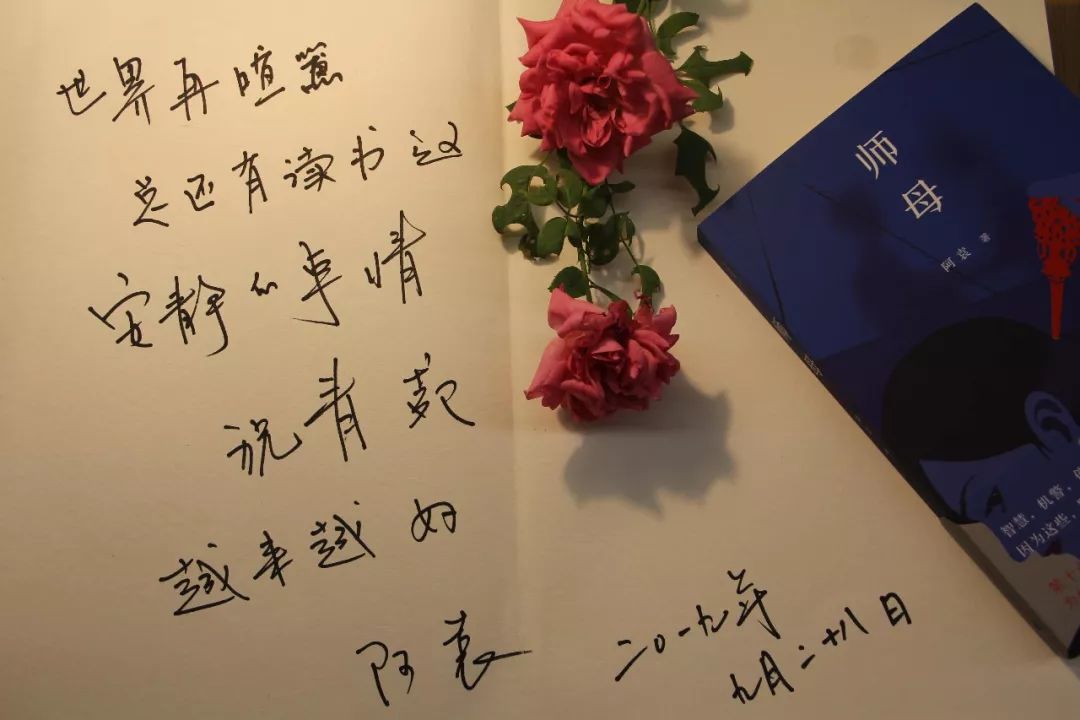 世界再喧嚣
总还有读书这
安静的事情
祝青苑
越来越好
阿袁
二〇一九年
九月二十八日
师母
阿袁 著
智慧，机警，
因为这些，
第十
为